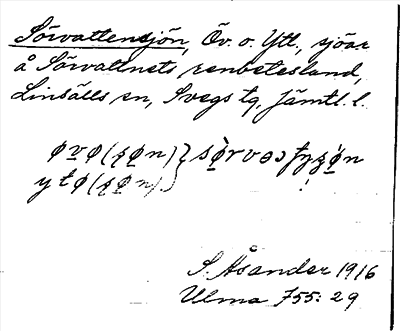 Sörvattensjön, Öv. o. Ytt., sjöar
å Sörvattnets renbetesland,
Linsälls sn, Svegs tg, Jämtl. l.
S. Åsander 1916
Ulma 755: 29